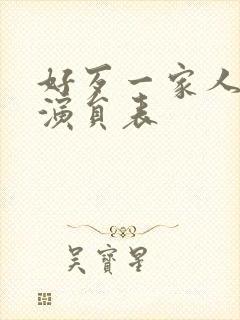 好歹一家人
演員表
吳寶星